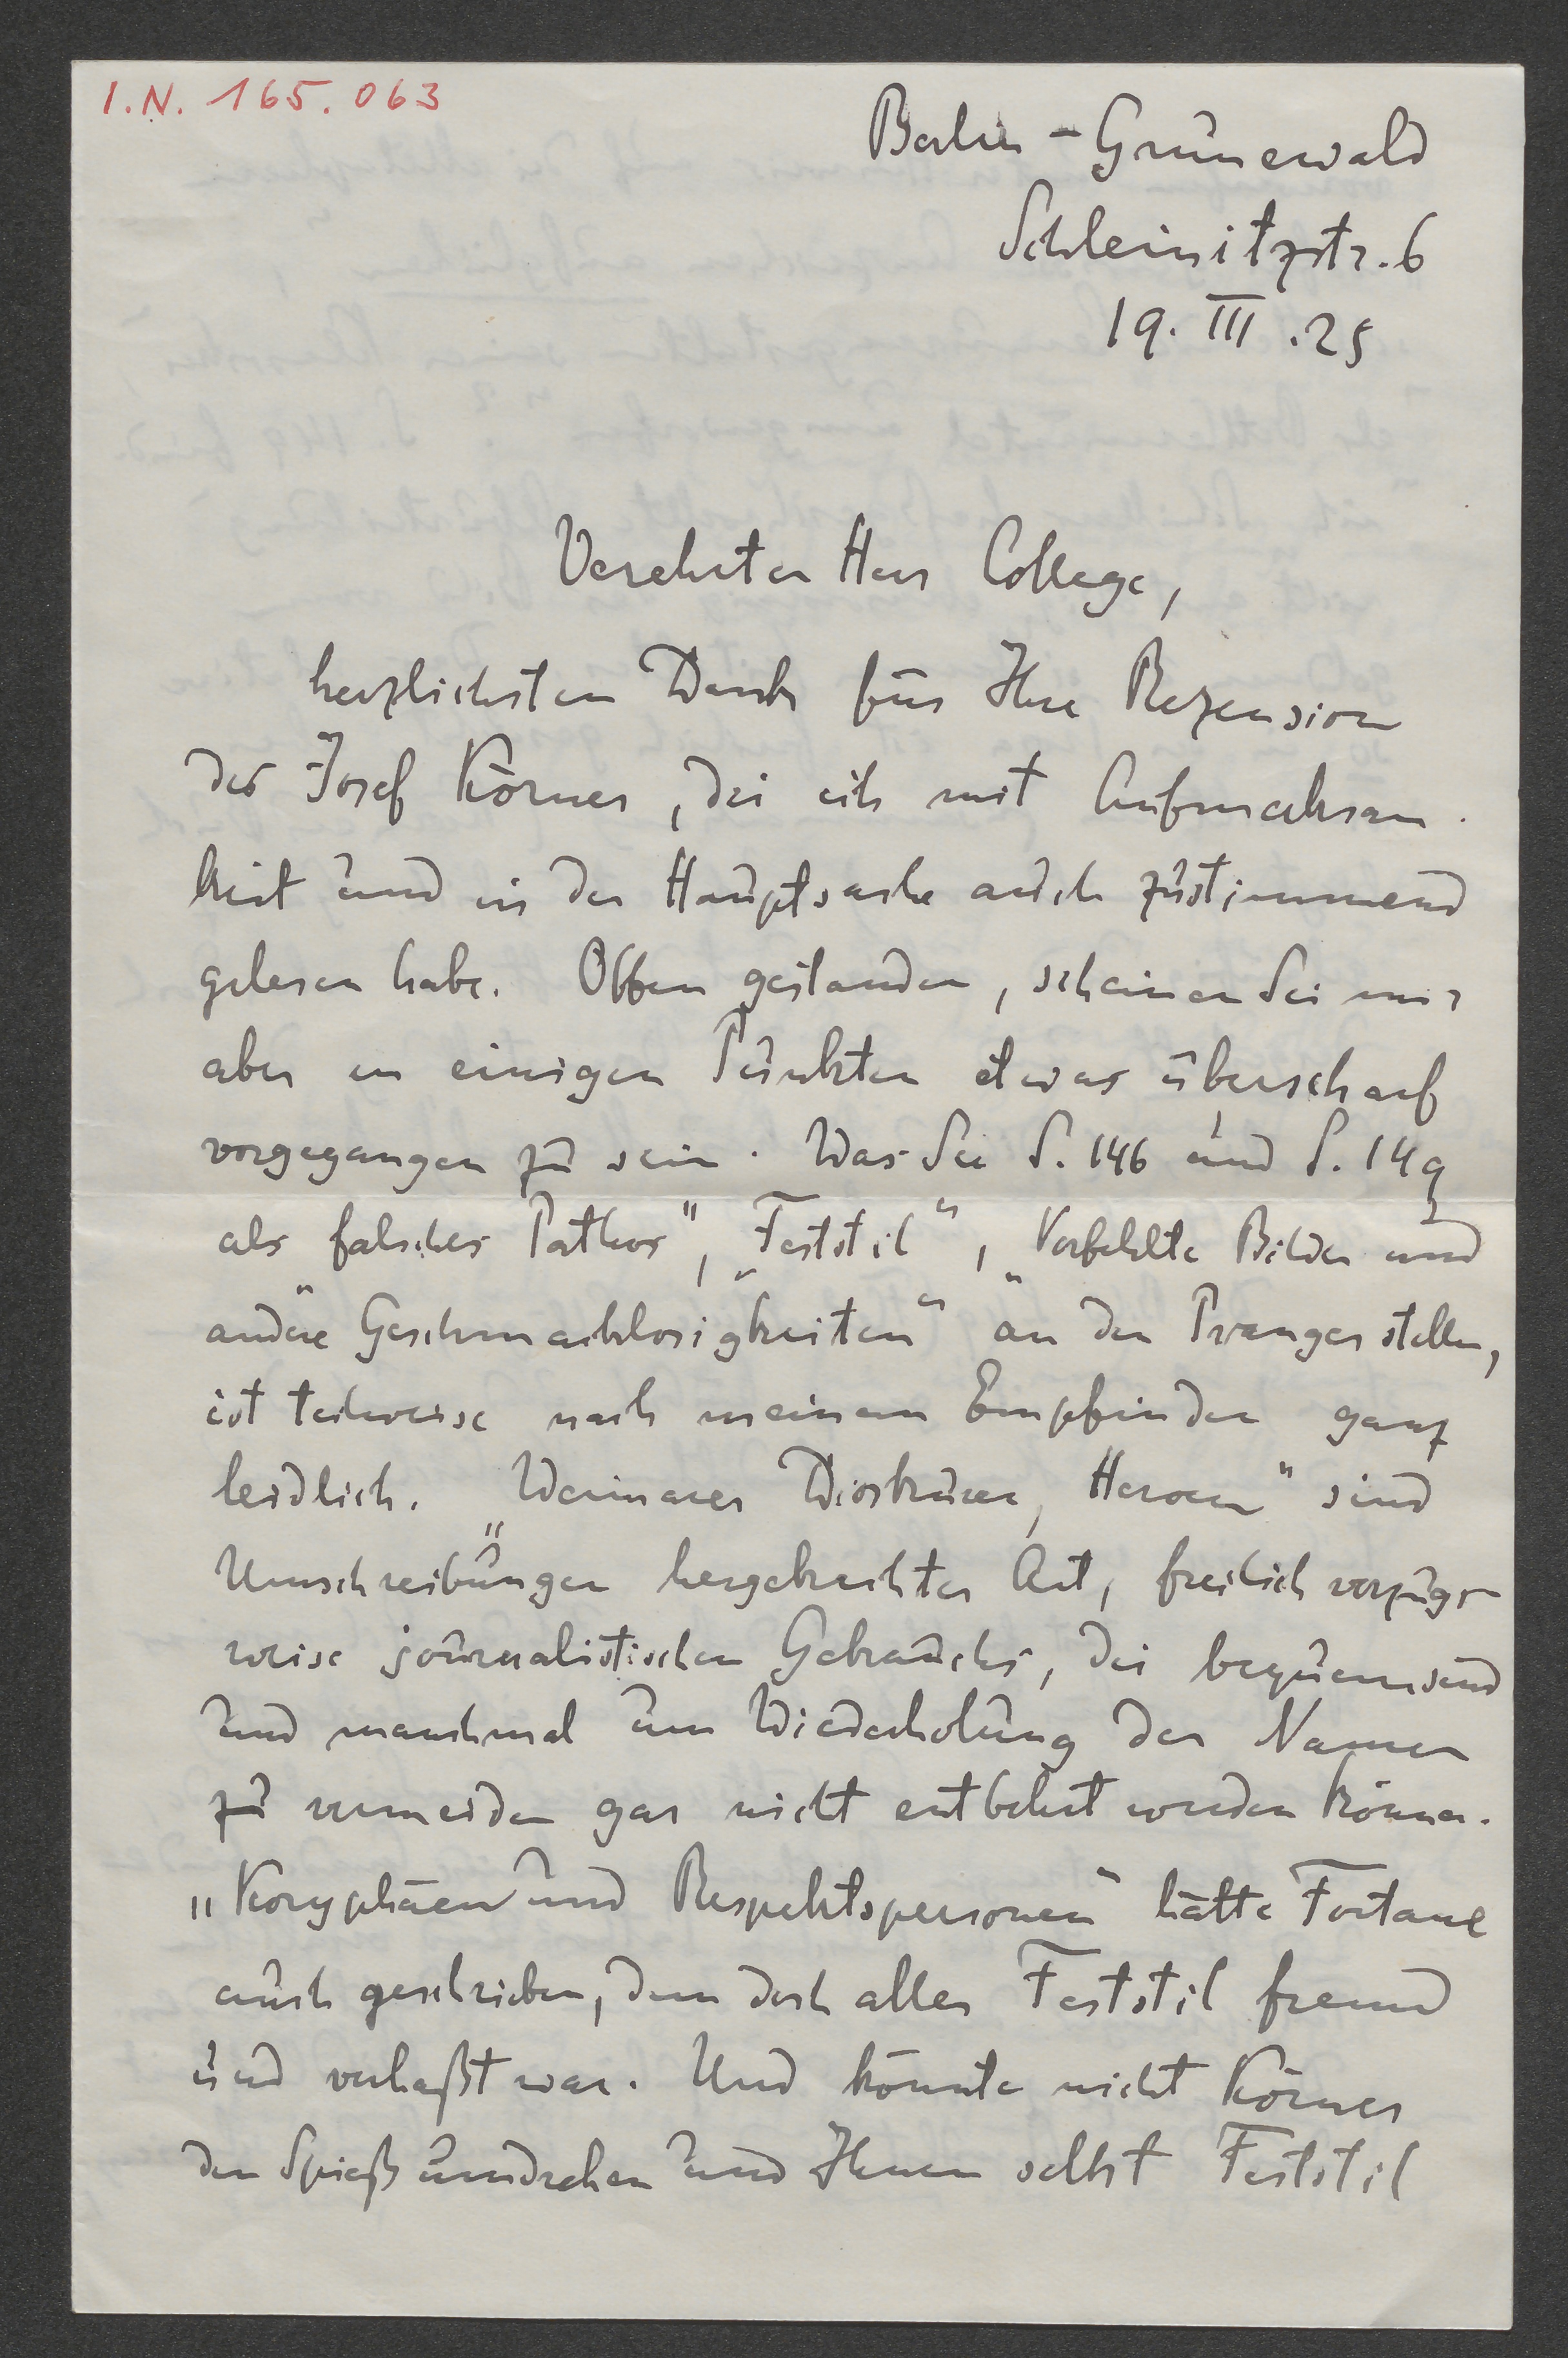 I.N. 165.063
Berlin - Grunewald
Schleinitzstr. 6
19. III. 25
Verehrter Herr College,
herzlichsten Dank für Ihre Rezension
des Josef Körner, die ich mit Aufmerksam-
keit und in der Hauptsache auch zustimmend
gelesen habe. Offen gestanden, scheinen Sie mir
aber in einigen Punkten etwas überscharf
vorgegangen zu sein. Was Sie S. 146 und S. 149
als falsches Pathos", „Feststil", „Verfehlte Bilder und
andere Geschmacklosigkeiten" an den Pranger stellen,
ist teilweise nach meinem Empfinden ganz
leidlich. „Weimarer Dioskuren, Heroen" sind
Umschreibungen hergebrachter Art, freilich vorzugs-
weise journalistischen Gebrauchs, die bequem sind
und manchmal um Wiederholung der Namen
zu vermeiden gar nicht entbehrt werden können.
„Koryphäen und Respektspersonen" hätte Fontane
auch geschrieben, dem doch aller Feststil fremd
und verhaßt war. Und könnte nicht Körner
den Spieß umdrehen und Ihnen selbst Feststil